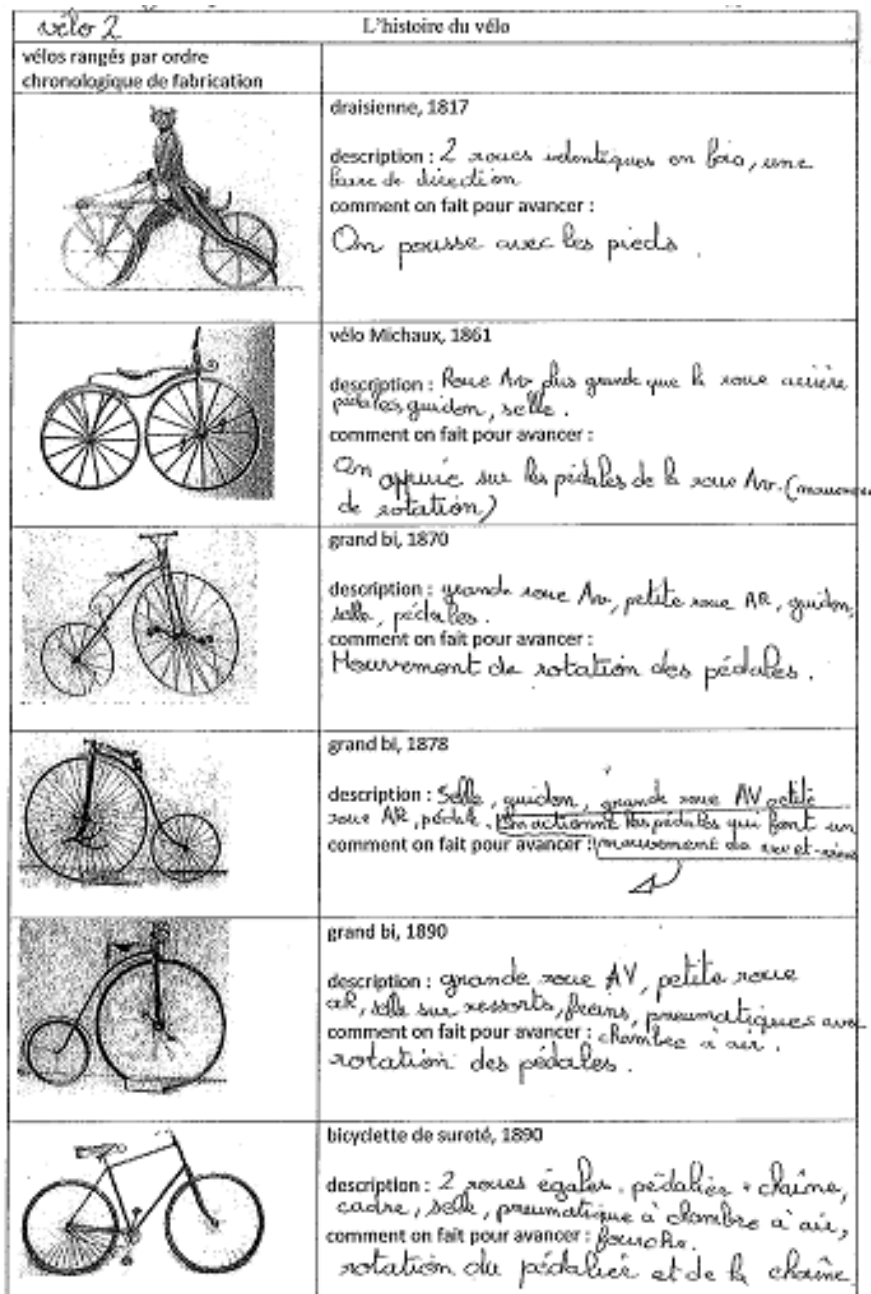 vélo 2
L'histoire du vélo
vélos rangés par ordre
chronologique de fabrication
draisienne, 1817
description : 2 roues identiques en bois, une
barre de direction
comment on fait pour avancer :
On pousse avec les pieds.
vélo Michaux, 1861
description : Roue Av plus grande que la roue arrière
pédales, guidon, selle.
comment on fait pour avancer :
On appuie sur les pédales de la roue Av. (mouvemen
de rotation)
grand bi, 1870
description : grande roue Av, petite roue AR, guidon,
selle, pédales.
comment on fait pour avancer :
Mouvement de rotation des pédales.
grand bi, 1878
description : Selle, guidon, grande roue AV petite
roue AR, pédale. On actionne les pédales qui font un
comment on fait pour avancer : mouvement de va et-vient
grand bi, 1890
description : grande roue AV, petite roue
AR, selle sur ressorts, freins, pneumatiques avec
comment on fait pour avancer : chambre à air.
rotation des pédales.
bicyclette de sureté, 1890
description : 2 roues égales. pédalier + chaîne,
cadre, selle, pneumatique à chambre à air,
comment on fait pour avancer : fourche.
rotation du pédalier et de la chaîne